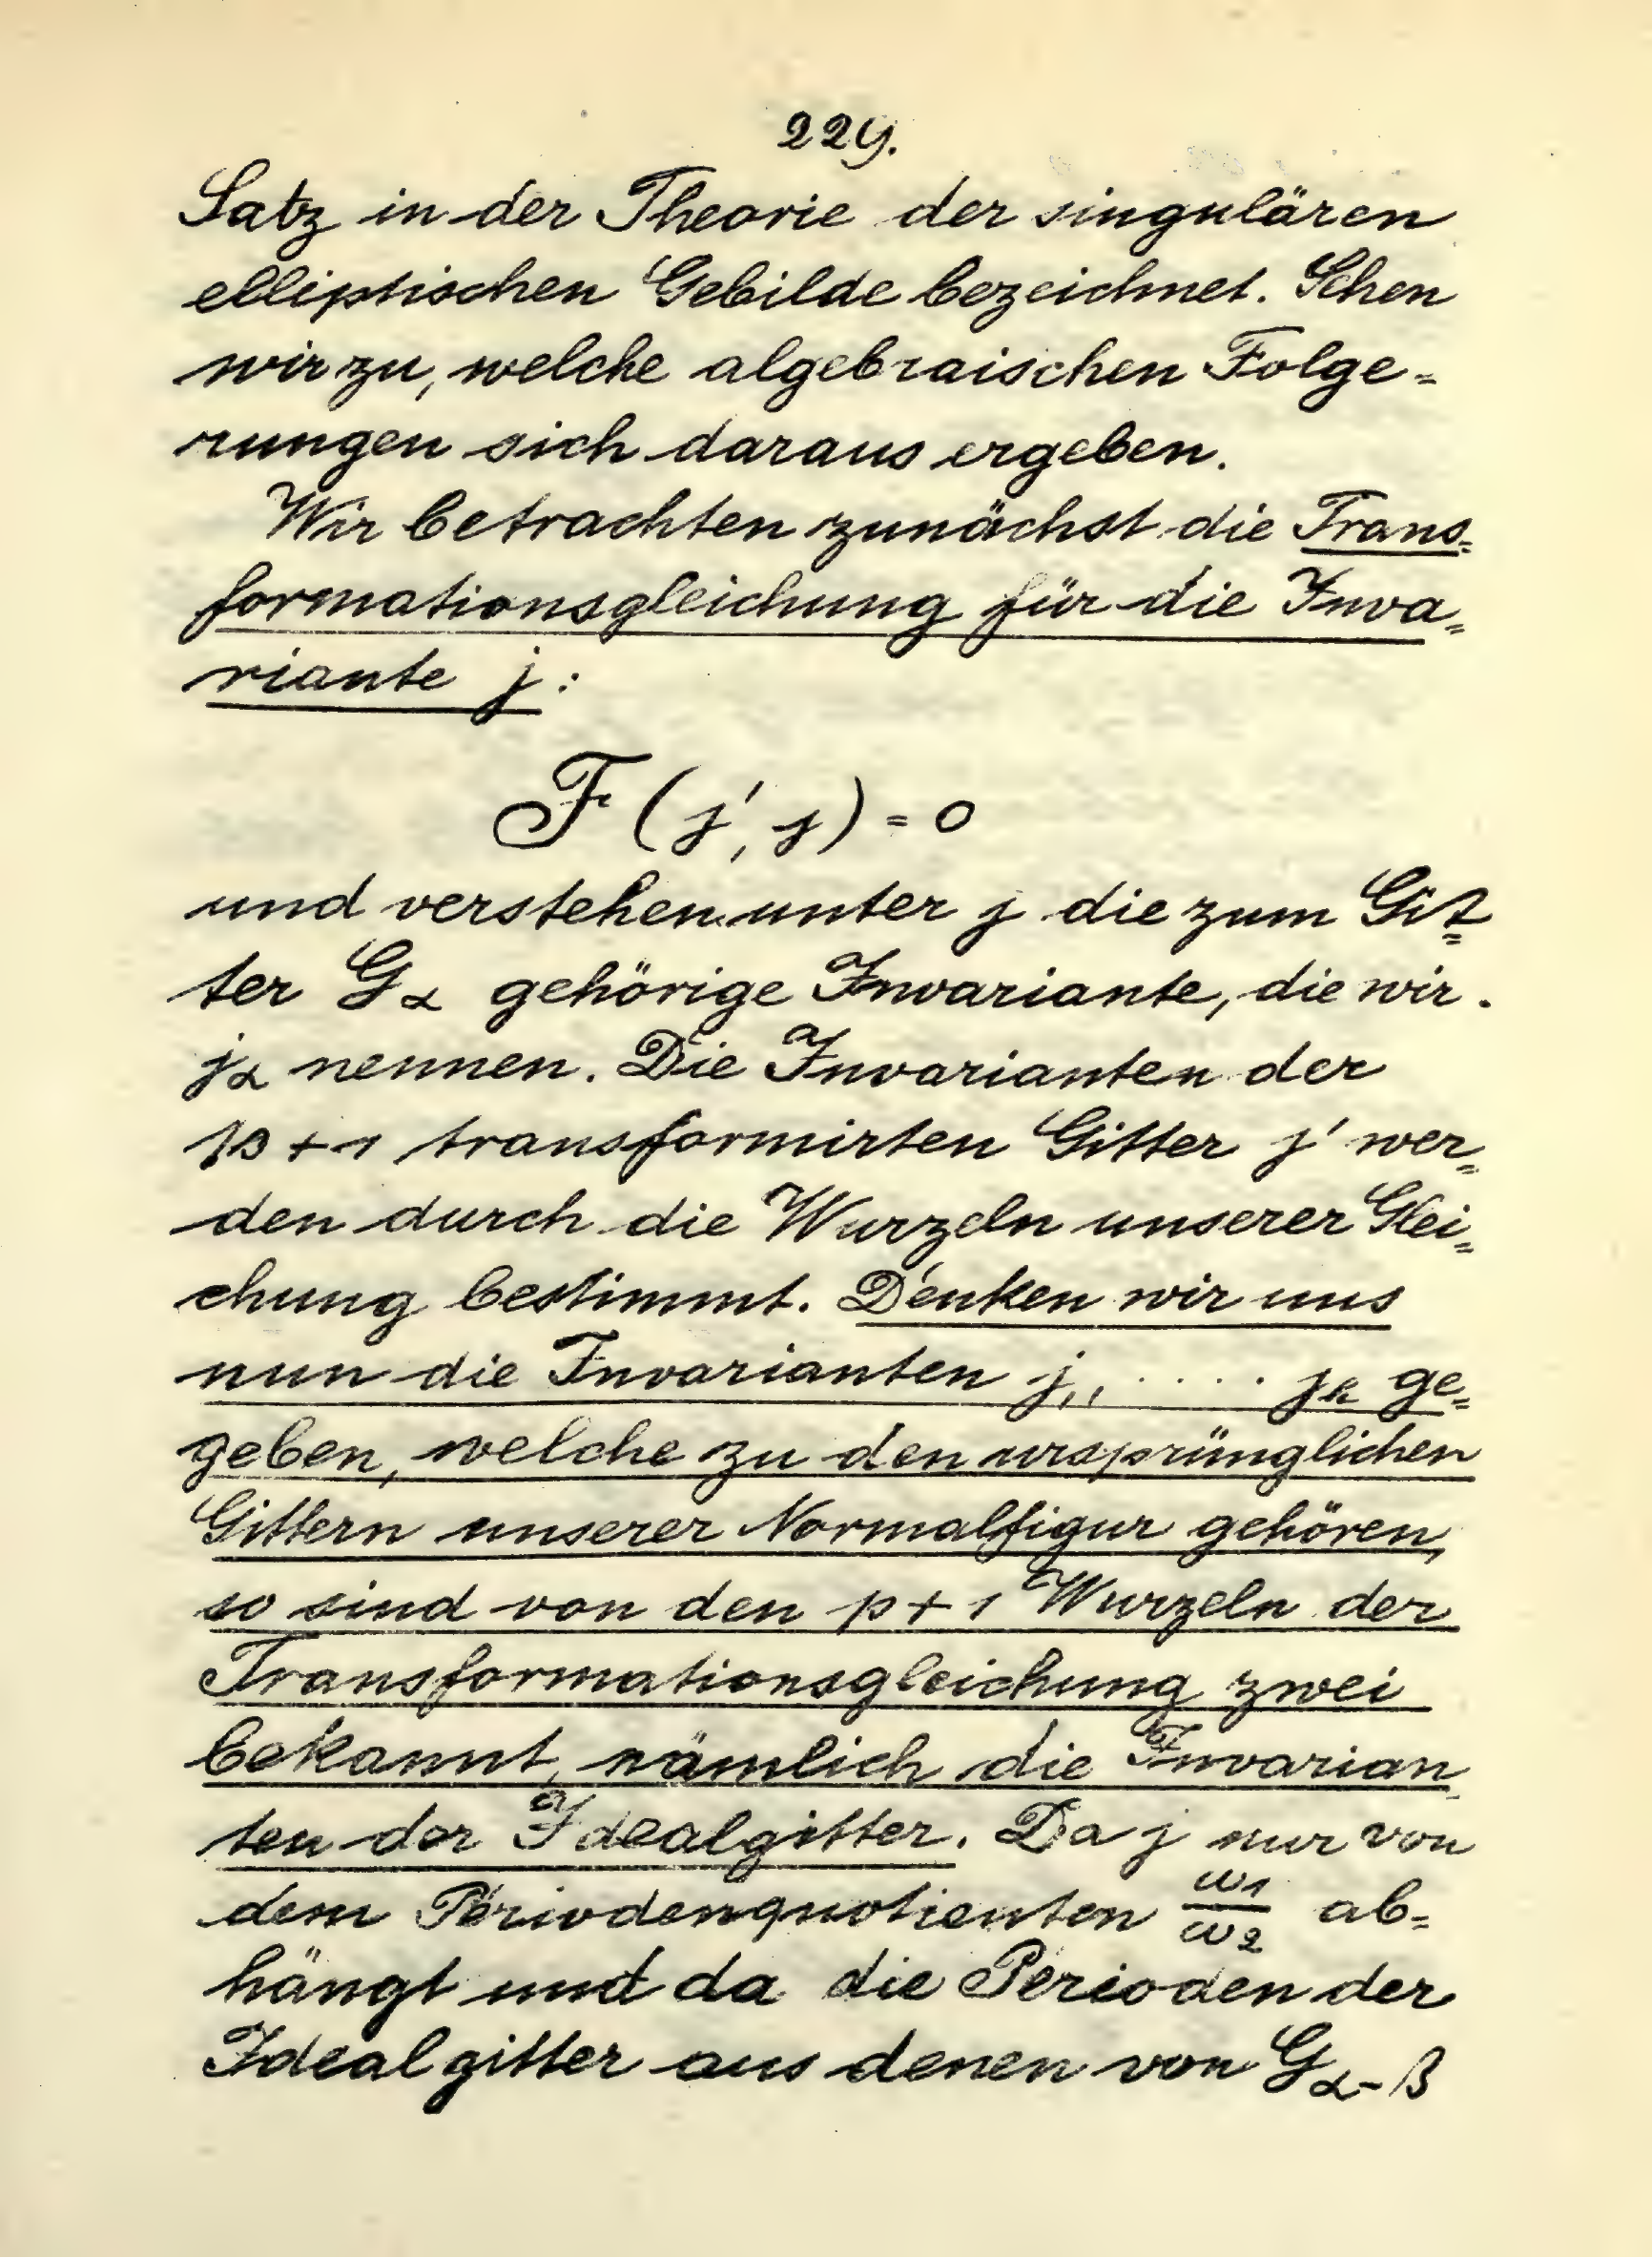 229.
Satz in der Theorie der singulären
elliptischen Gebilde bezeichnet. Sehen
wir zu, welche algebraischen Folge=
rungen sich daraus ergeben.
Wir betrachten zunächst die Trans=
formationsgleichung für die Inva=
riante j:
F (j', j) = 0
und verstehen unter j die zum Git=
ter Gα gehörige Invariante, die wir
jα nennen. Die Invarianten der
p + 1 transformirten Gitter j' wer=
den durch die Wurzeln unserer Glei=
chung bestimmt. Denken wir uns
nun die Invarianten j₁, ..... jh ge=
geben, welche zu den ursprünglichen
Gittern unserer Normalfigur gehören,
so sind von den p + 1 Wurzeln der
Transformationsgleichung zwei
bekannt, nämlich die Invarian=
ten der Idealgitter. Da j nur von
dem Periodenquotienten ω1/ω2 ab=
hängt und da die Perioden der
Idealgitter aus denen von Gα-β